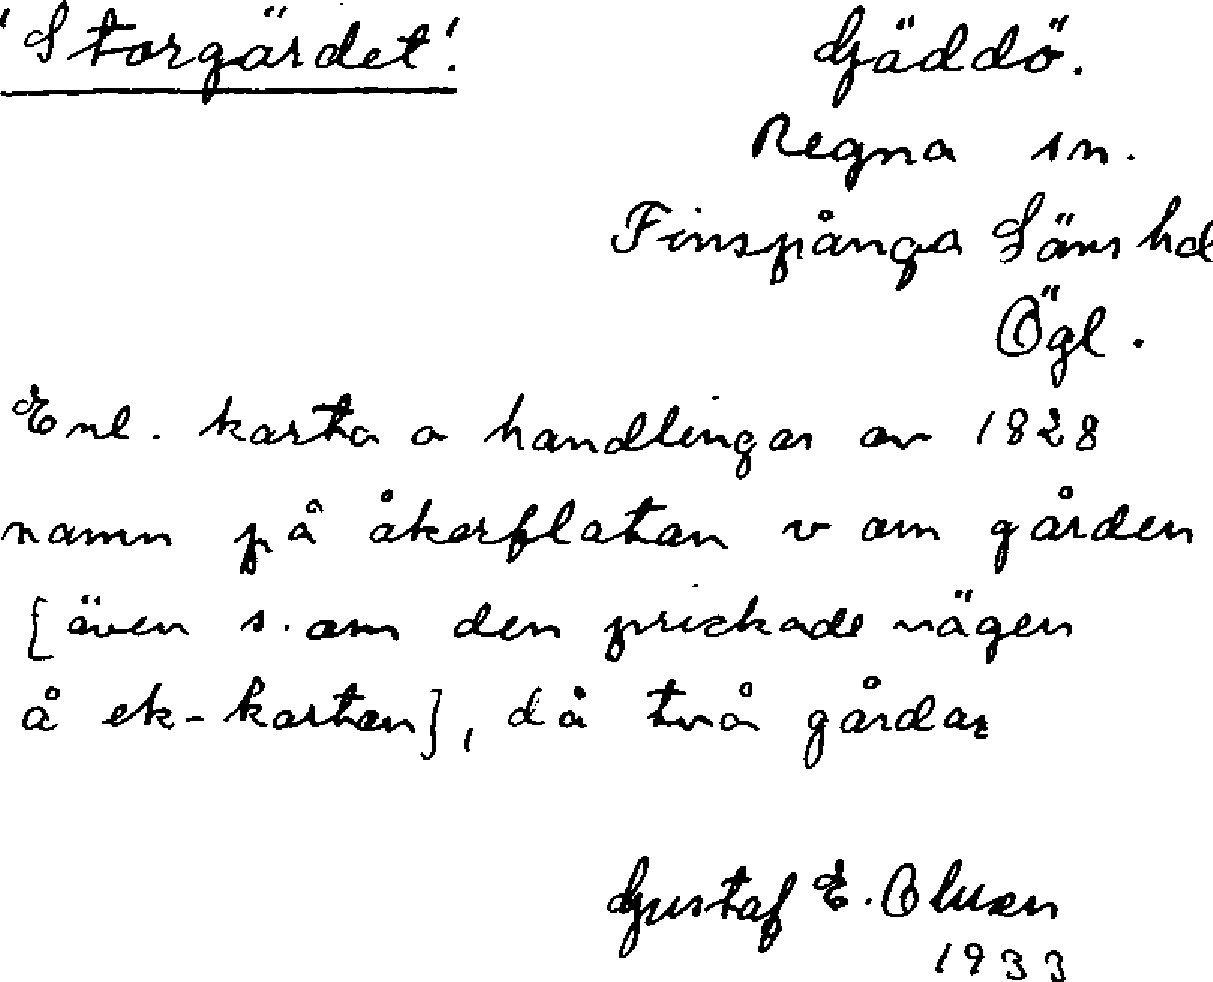 'Storgärdet'. Gäddö.
Regna sn.
Finspånga läns hd
Ögl.
Enl. karta o handlingar av 1828
namn på åkerflatan v om gården
[även s. om den prickade vägen
å ek-kartan], då två gårdar
Gustaf E. Olsson
1933